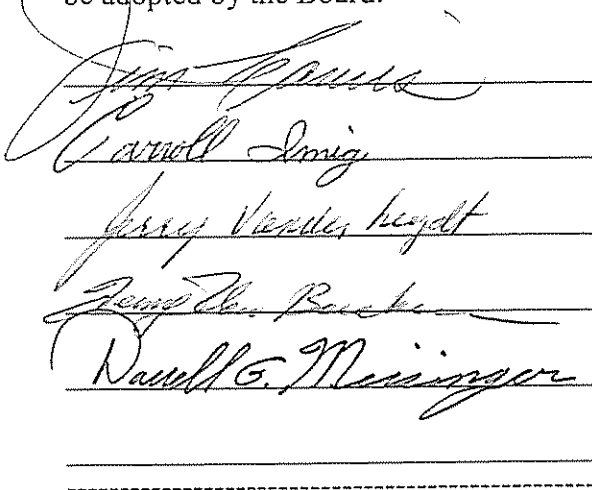 be adopted by the Board.
Jim
Carroll Imig
Jerry Vander heydt
Darrell G. Meisinger